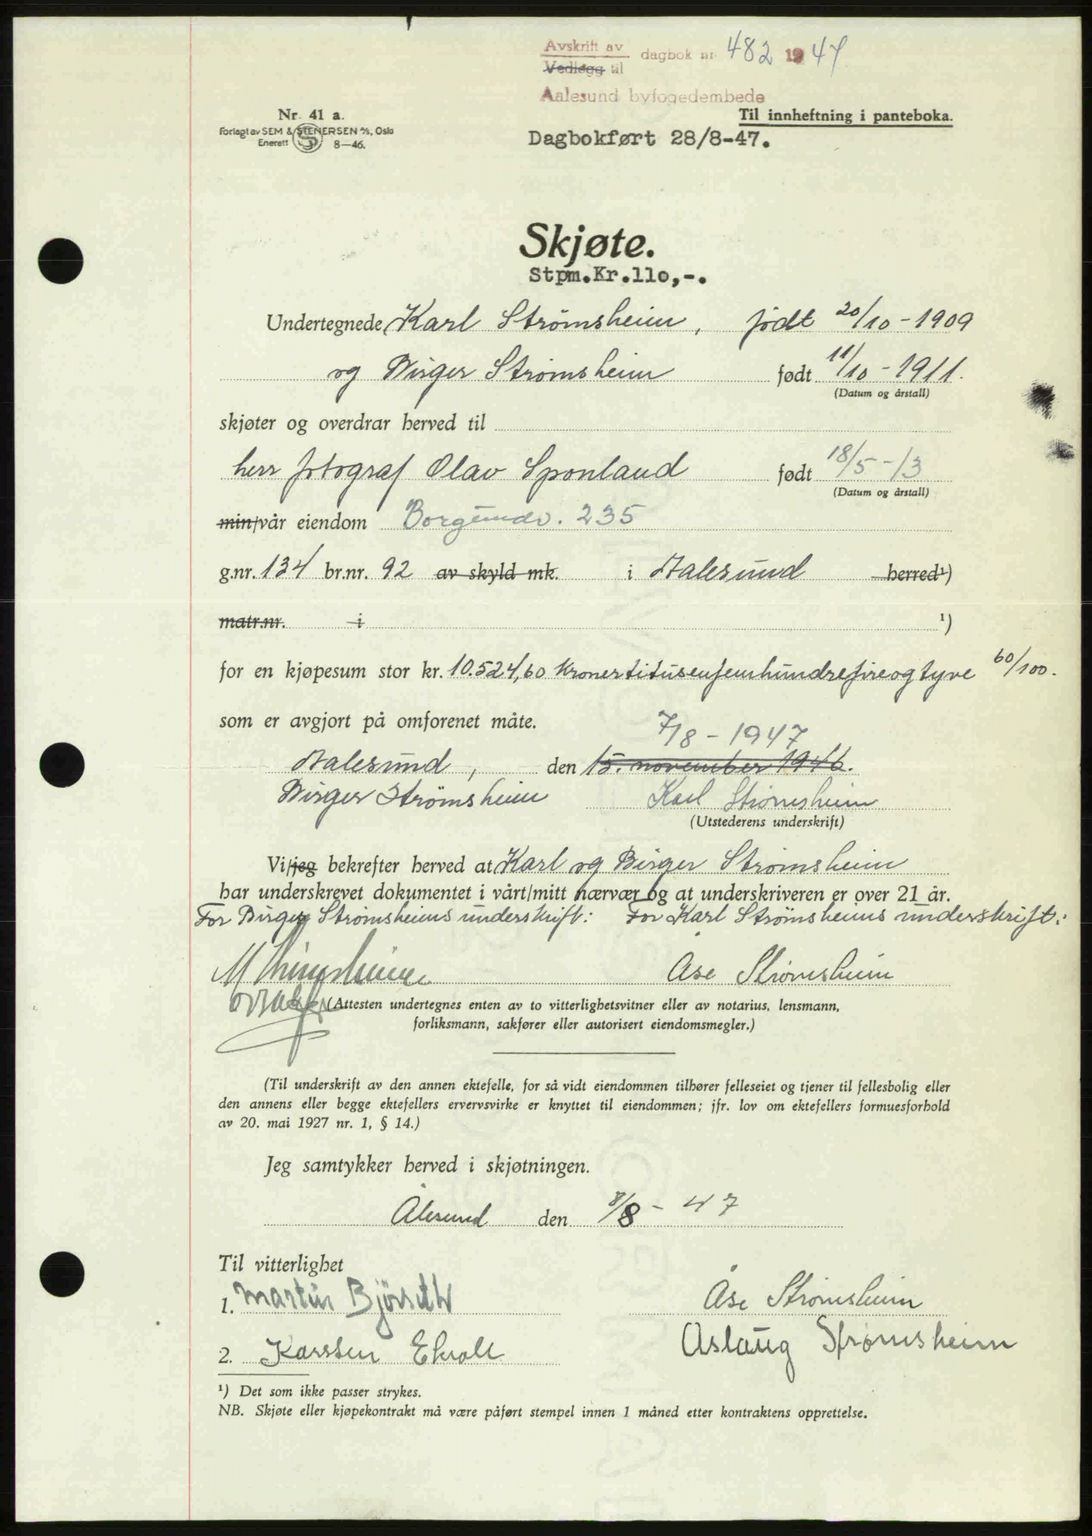 Avskrift av dagbok nr 482 1947
Vedlegg til
Aalesund byfogedembede
Nr. 41 a.
Til innheftning i panteboka.
Forlagt av SEM & STENERSEN A/S, Oslo
Enerett 8—46.
Dagbokført 28/8-47.
Skjøte.
Stpm.Kr.110,-.
Undertegnede Karl Strømsheim, født 20/10 - 1909
og Birger Strømsheim født 11/10 - 1911.
(Datum og årstall)
skjøter og overdrar herved til
herr fotograf Olav Sponland født 18/5 - 13
(Datum og årstall)
min/vår eiendom Borgundv. 235
g.nr. 134 br.nr. 92 av skyld mk. i Aalesund herred¹)
matr.nr. i ¹)
for en kjøpesum stor kr. 10.524,60 Kronertitusenfemhundrefireogtyve 60/100.
som er avgjort på omforenet måte.
7/8 - 1947
Aalesund, den 15. november 1946.
Birger Strømsheim Karl Strømsheim
(Utstederens underskrift)
Vi/jeg bekrefter herved at Karl og Birger Strømsheim
har underskrevet dokumentet i vårt/mitt nærvær og at underskriveren er over 21 år.
For Birger Strømsheims underskrift: For Karl Strømsheims underskrift:
Åse Strømsheim
(Attesten undertegnes enten av to vitterlighetsvitner eller av notarius, lensmann,
forliksmann, sakfører eller autorisert eiendomsmegler.)
(Til underskrift av den annen ektefelle, for så vidt eiendommen tilhører felleseiet og tjener til fellesbolig eller
den annens eller begge ektefellers ervervsvirke er knyttet til eiendommen; jfr. lov om ektefellers formuesforhold
av 20. mai 1927 nr. 1, § 14.)
Jeg samtykker herved i skjøtningen.
Ålesund den 8/8 - 47
Til vitterlighet
1. Martin Bjørseth Åse Strømsheim
Aslaug Strømsheim
2. Karsten Ekroll
¹) Det som ikke passer strykes.
NB. Skjøte eller kjøpekontrakt må være påført stempel innen 1 måned etter kontraktens opprettelse.